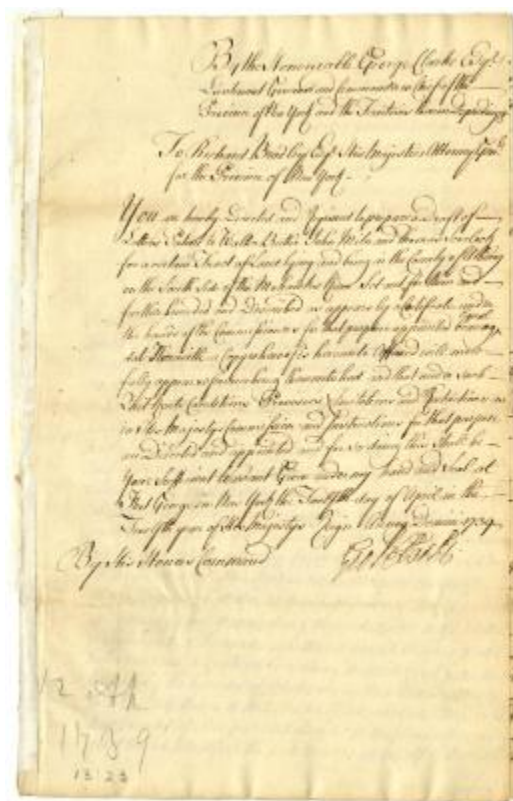 By the Honourable George Clarke Esqr.
Lieutenant Governor and Commander in Chief of the
Province of New York and the Territories thereon depending
To Richard Bradley Esqr. His Majesties Attorney Genl.
for the Province of New York.
You are hereby Directed and Required to prepare a Draft of
Letters Patent to Walter Butler John and
for a certain Tract of Land lying and being in the County of Albany
on the South Side of the River Set out for them and
further bounded and Described as appears by a Certificate under
the hands of the Commissioners for that purpose appointed bearing
date a Copy whereof is hereunto Affixed will more
fully appear hereunto had and that under such
Quitrents Conditions Provisoes Limitations and Restrictions as
in His Majestys Commission and Instructions for that purpose
are Directed and appointed and for so doing this Shall be
Your Sufficient Warrant Given under my hand and Seal at
Fort George in New York the Twelfth day of April in the
Twelfth year of His Majestys Reign Domini 1739
By His Honours Command Geo Clarke
12 Ap
1739
13 23